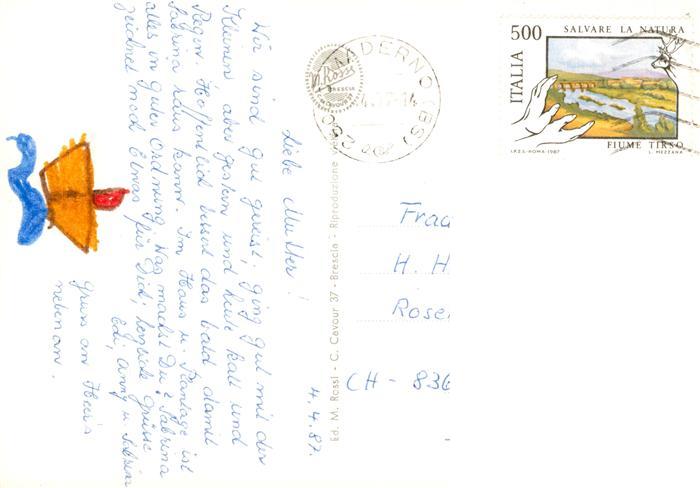 4.4.87.
Liebe Mutter!
Wir sind gut gereist, ging gut mit der
Kleinen aber gestern und heute kalt und
Regen. Hoffentlich bessert das bald damit
Sabrina raus kann. Im Haus u. Plantage ist
alles in guter Ordnung. Was machst Du? Sabrina
zeichnet noch Etwas für Dich, herzliche Grüsse
Edi, Anny u. Sabrina
Gruss an Heiris
nebenan.
Ed. M. Rossi - C. Cavour 37 - Brescia - Riproduzione
M. Rossi
BRESCIA
MADERNO (BS)
500
ITALIA
SALVARE LA NATURA
FIUME TIRSO
I.P.Z.S.-ROMA-1987
L. MEZZANA
Frau
H. H
Rose
CH - 836